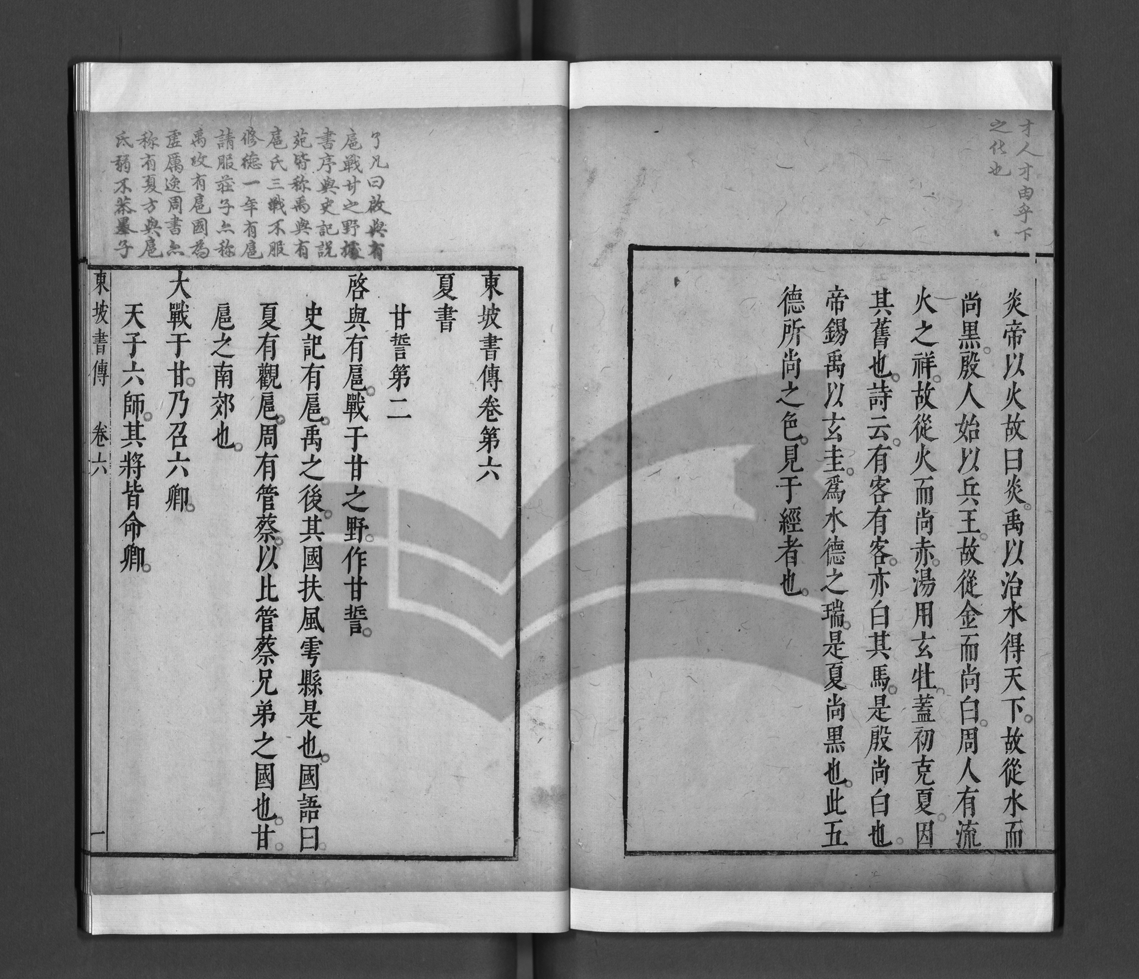 才人才由乎下
之化也
炎帝以火故曰炎。禹以治水得天下。故從水而
尚黑。殷人始以兵王。故從金而尚白。周人有流
火之祥。故從火而尚赤。湯用玄牡。蓋初克夏。因
其舊也。詩云。有客有客。亦白其馬。是殷尚白也。
帝錫禹以玄圭。爲水德之瑞。是夏尚黑也。此五
德所尚之色。見于經者也。
了凡曰啟與有
扈戰甘之野據
書序與史記説
苑皆称禹與有
扈氏三戰不服
修德一年有扈
請服莊子亦称
禹攻有扈國為
虚厲逸周書亦
称有夏方與扈
氏弱不恭
東坡書傳卷第六
夏書
甘誓第二
啓與有扈。戰于甘之野。作甘誓。
史記有扈。禹之後。其國扶風雩縣是也。國語曰。
夏有觀扈。周有管蔡。以比管蔡兄弟之國也。甘。
扈之南郊也。
大戰于甘。乃召六卿。
天子六師。其將皆命卿。
東坡書傳 卷六 一